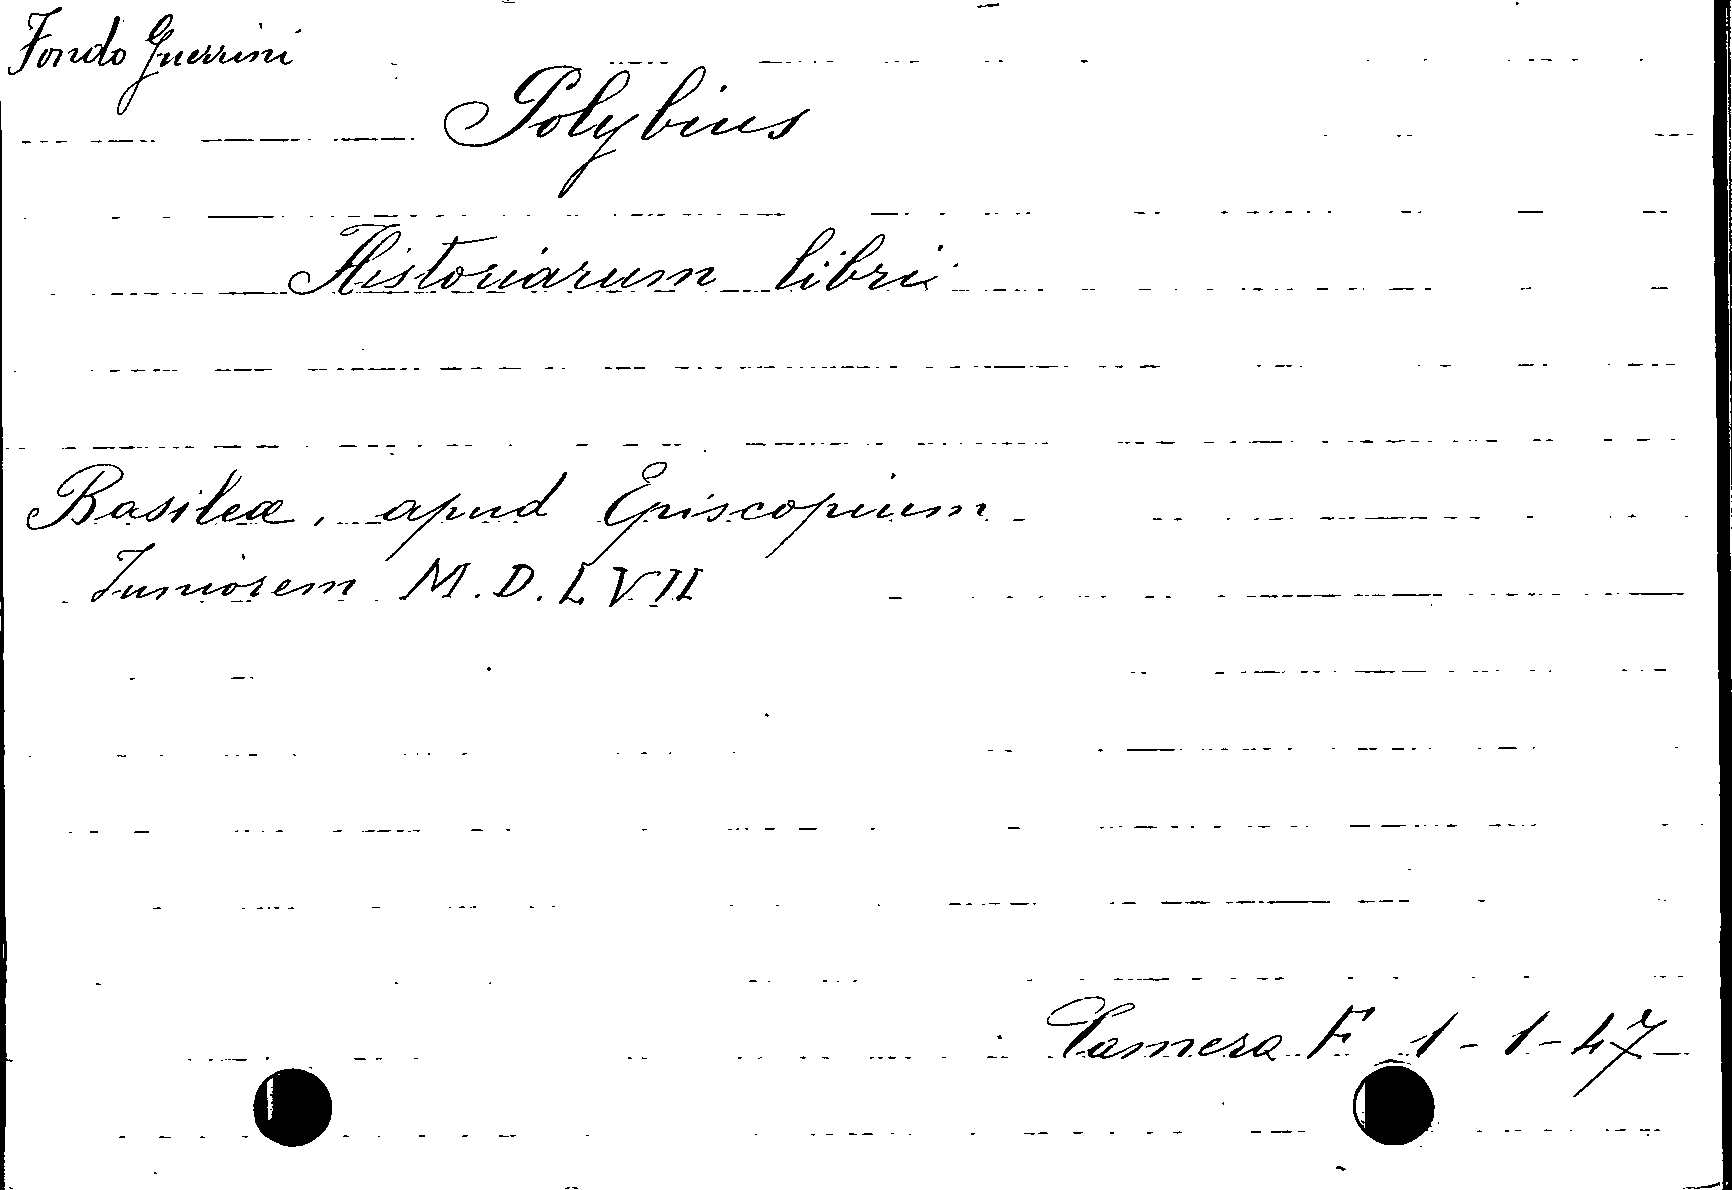 Fondo Guerrini
Polybius
Historiarum libri
Basileæ, apud Episcopium
Juniorem M.D.LVII
Camera F 1-1-47